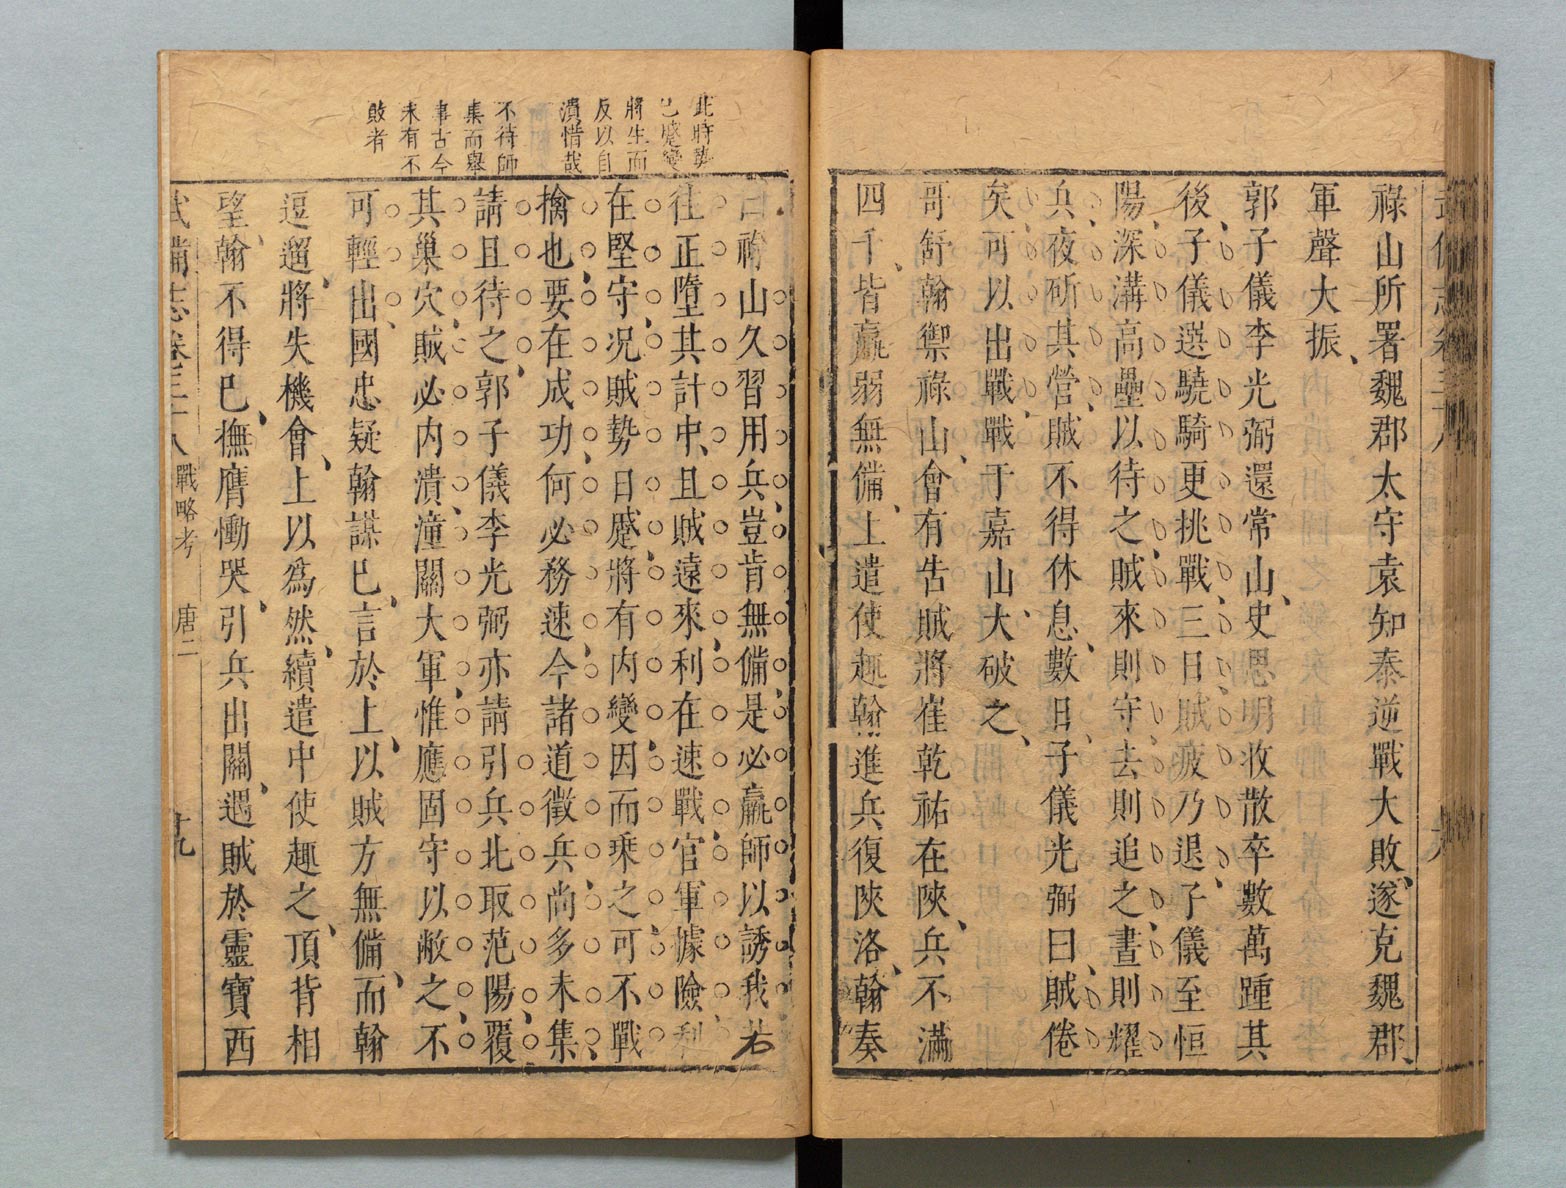 祿山所署魏郡太守袁知泰逆戰大敗遂克魏郡
軍聲大振
郭子儀李光弼還常山史思明收散卒數萬踵其
後子儀選驍騎更挑戰三日賊疲乃退子儀至恒
陽深溝高壘以待之賊來則守去則追之晝則耀
兵夜斫其營賊不得休息數日子儀光弼曰賊倦
矣可以出戰戰于嘉山大破之
哥舒翰禦祿山會有告賊將崔乾祐在陝兵不滿
四千皆羸弱無備上遣使趣翰進兵復陝洛翰奏
曰祿山久習用兵豈肯無備是必羸師以誘我若
往正墮其計中且賊遠來利在速戰官軍據險利
在堅守况賊勢日蹙將有内變因而乘之可不戰
擒也要在成功何必務速今諸道徵兵尚多未集
請且待之郭子儀李光弼亦請引兵北取范陽覆
其巢穴賊必内潰潼關大軍惟應固守以敝之不
可輕出國忠疑翰謀已言於上以賊方無備而翰
逗遛將失機會上以爲然續遣中使趣之項背相
望翰不得已撫膺慟哭引兵出關遇賊於靈寶西
武備志卷三十八 戰略考 唐二 十九
此時勢
已蹙變
將生而
反以自
潰惜哉
不待師
集而舉
事古今
未有不
敗者